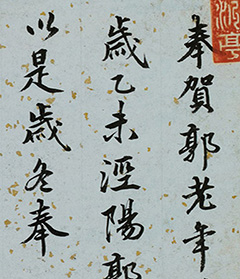 奉賀郭老年
歲乙未涇陽郭
以是歲冬奉